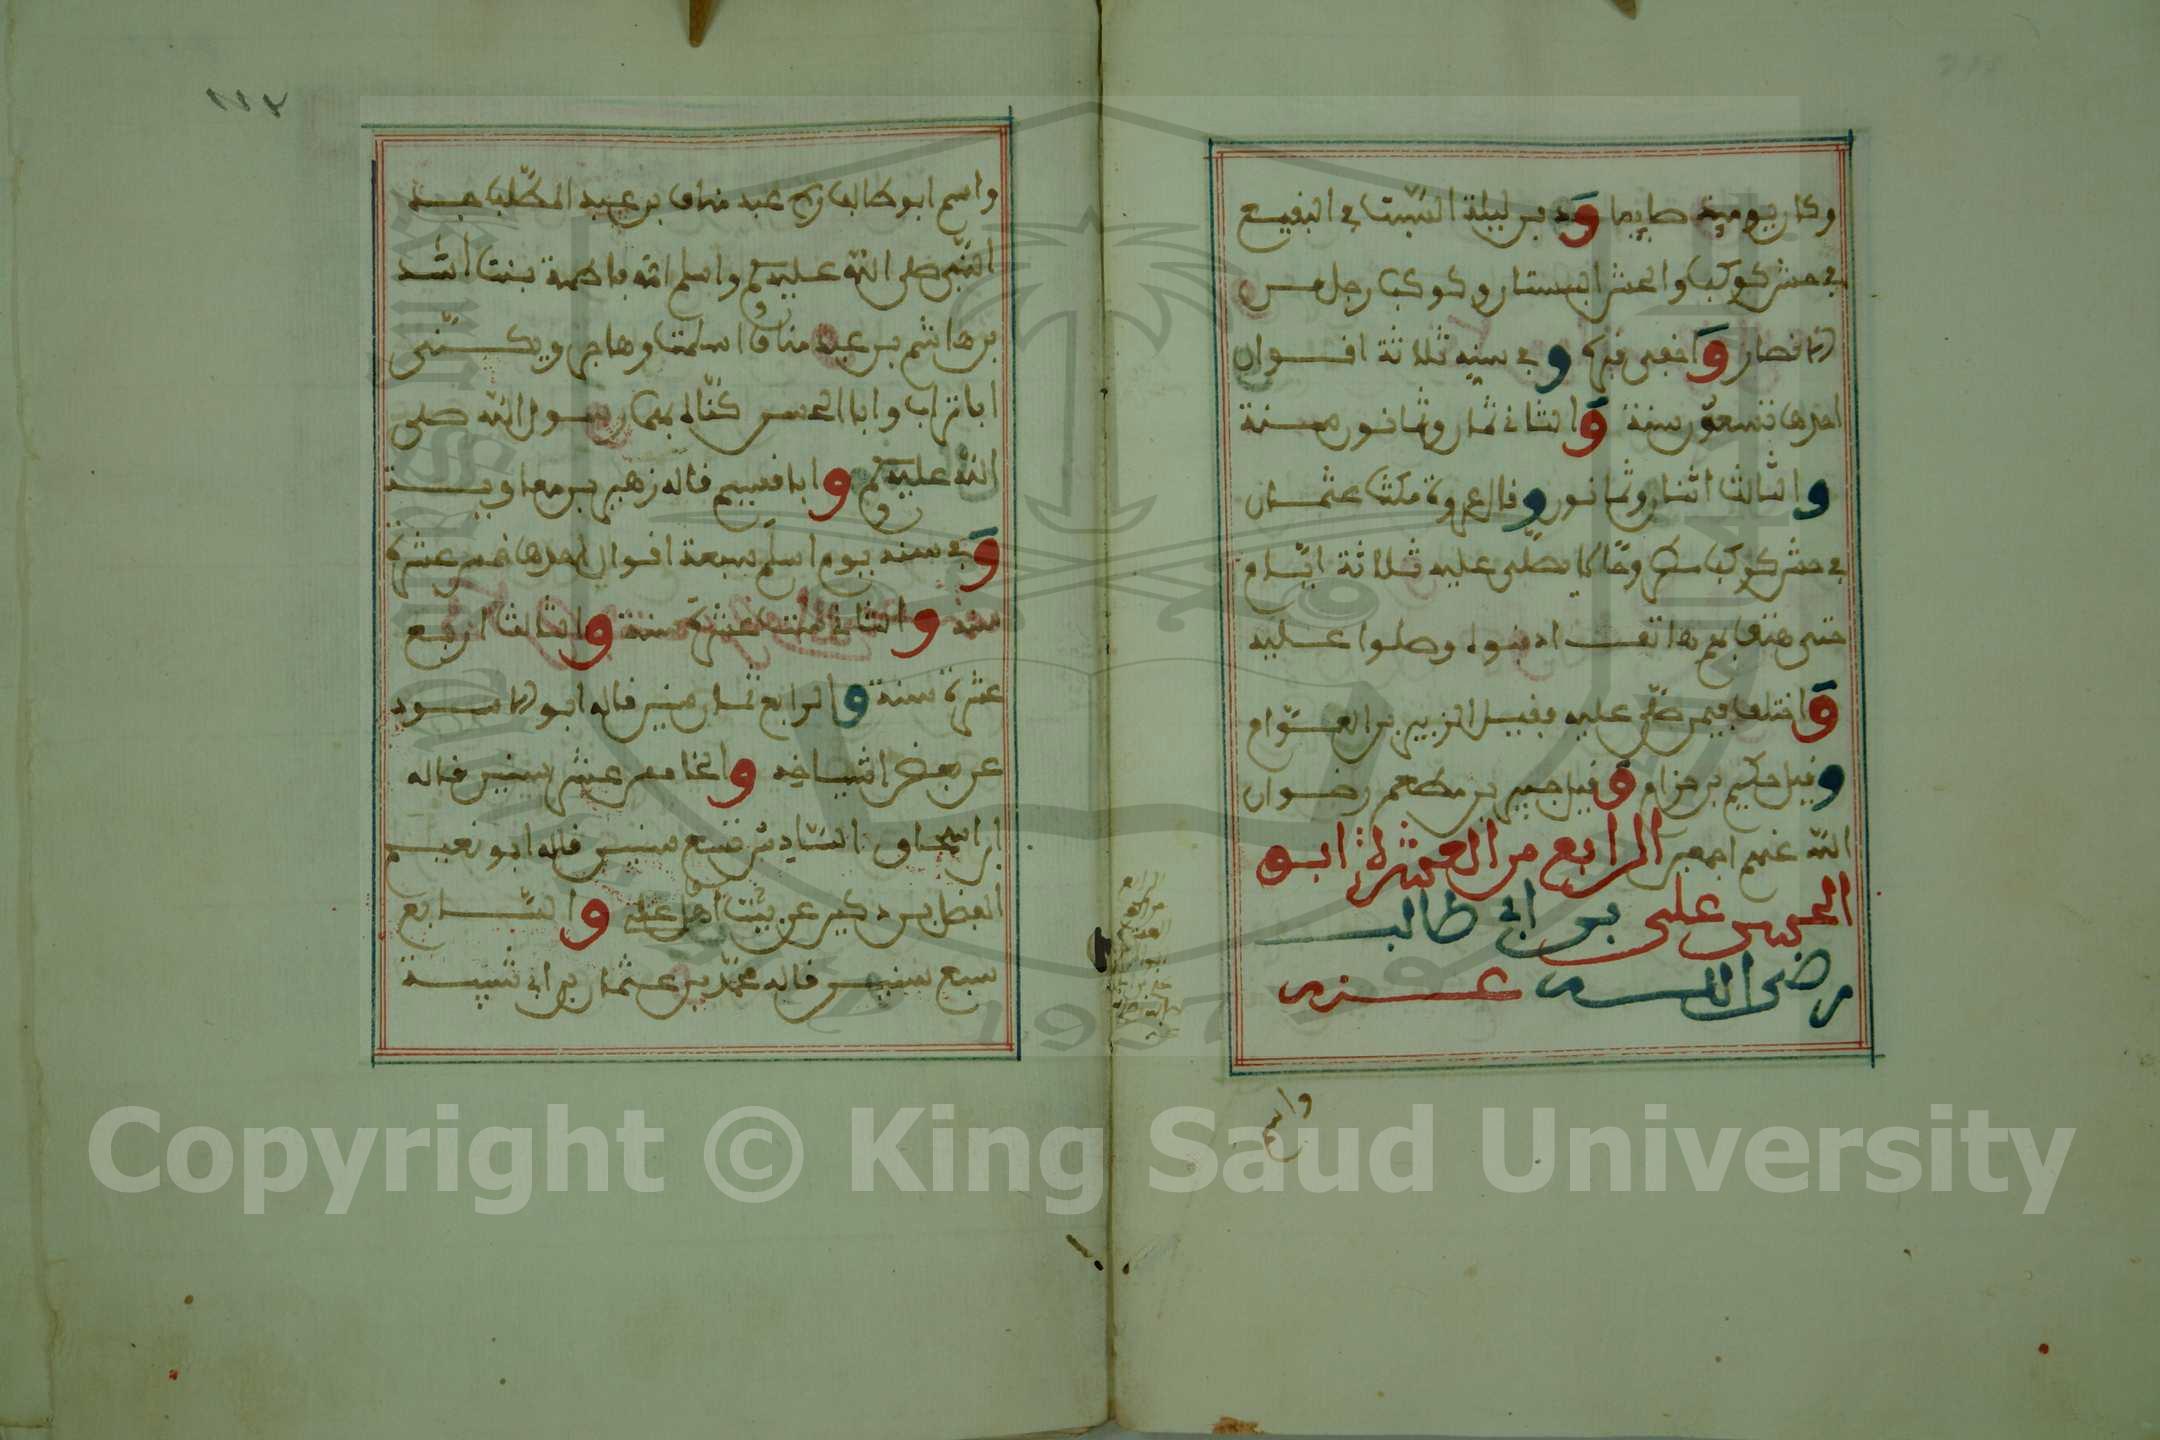 وكان يومئذ صايما ودفن ليلة السبت في البقيع
في حش كوكب والحش البستان وكوكب رجل من
الانصار واخفي قبره وفي سنه ثلاثة اقوال
احدها تسعون سنة والثاني ثمان وثمانون سنة
والثالث اثنان وثمانون وقال عروة مكث عثمان
في حش كوكب مطروحا لا يصلى عليه ثلاثة ايام
حتى هتف بهم هاتف ادفنوه وصلوا عليه
واختلف فيمن صلى عليه فقيل الزبير بن العوام
وقيل حكيم بن حزام وقيل جبير بن مطعم رضوان
الله عنهم اجمعين الرابع من العشرة ابو
الحسن علي بن ابي طالب
رضي الله عنه
واسم
الرابع
من
العشرة
١١٧
واسم ابو طالب عبد مناف بن عبد المطلب جد
النبي صلى الله عليه وسلم واسم امه فاطمة بنت اسد
بن هاشم بن عبد مناف اسلمت وهاجرت ويكنى
ابا تراب وابا الحسن كناه بهما رسول الله صلى
الله عليه وسلم وابا قسيم قاله زهير بن معاوية
وفي سنه يوم اسلم سبعة اقوال احدها خمس عشرة
سنة والثاني ست عشرة سنة والثالث اربع
عشرة سنة والرابع ثمان سنين قاله ابو الاسود
عن بعض اشياخه والخامس عشر سنين قاله
ابن اسحاق السادس تسع سنين قاله ابو نعيم
الفضل بن دكين عن بنت اهل علي والسابع
سبع سنين قاله محمد بن عثمان بن ابي شيبة
Copyright © King Saud University
1957